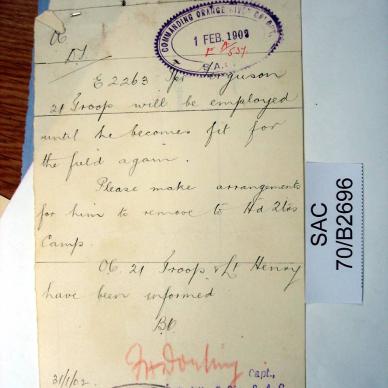 COMMANDING ORANGE RIVER
1 FEB. 1902
S.A.C.
E 2263 Tpr Ferguson
21 Troop will be employed
until he becomes fit for
the field again.
Please make arrangements
for him to remove to Hd Qtrs
Camp.
OC. 21 Troop & Lt Henry
have been informed
Capt.,
31/1/02.
SAC
70/B2696